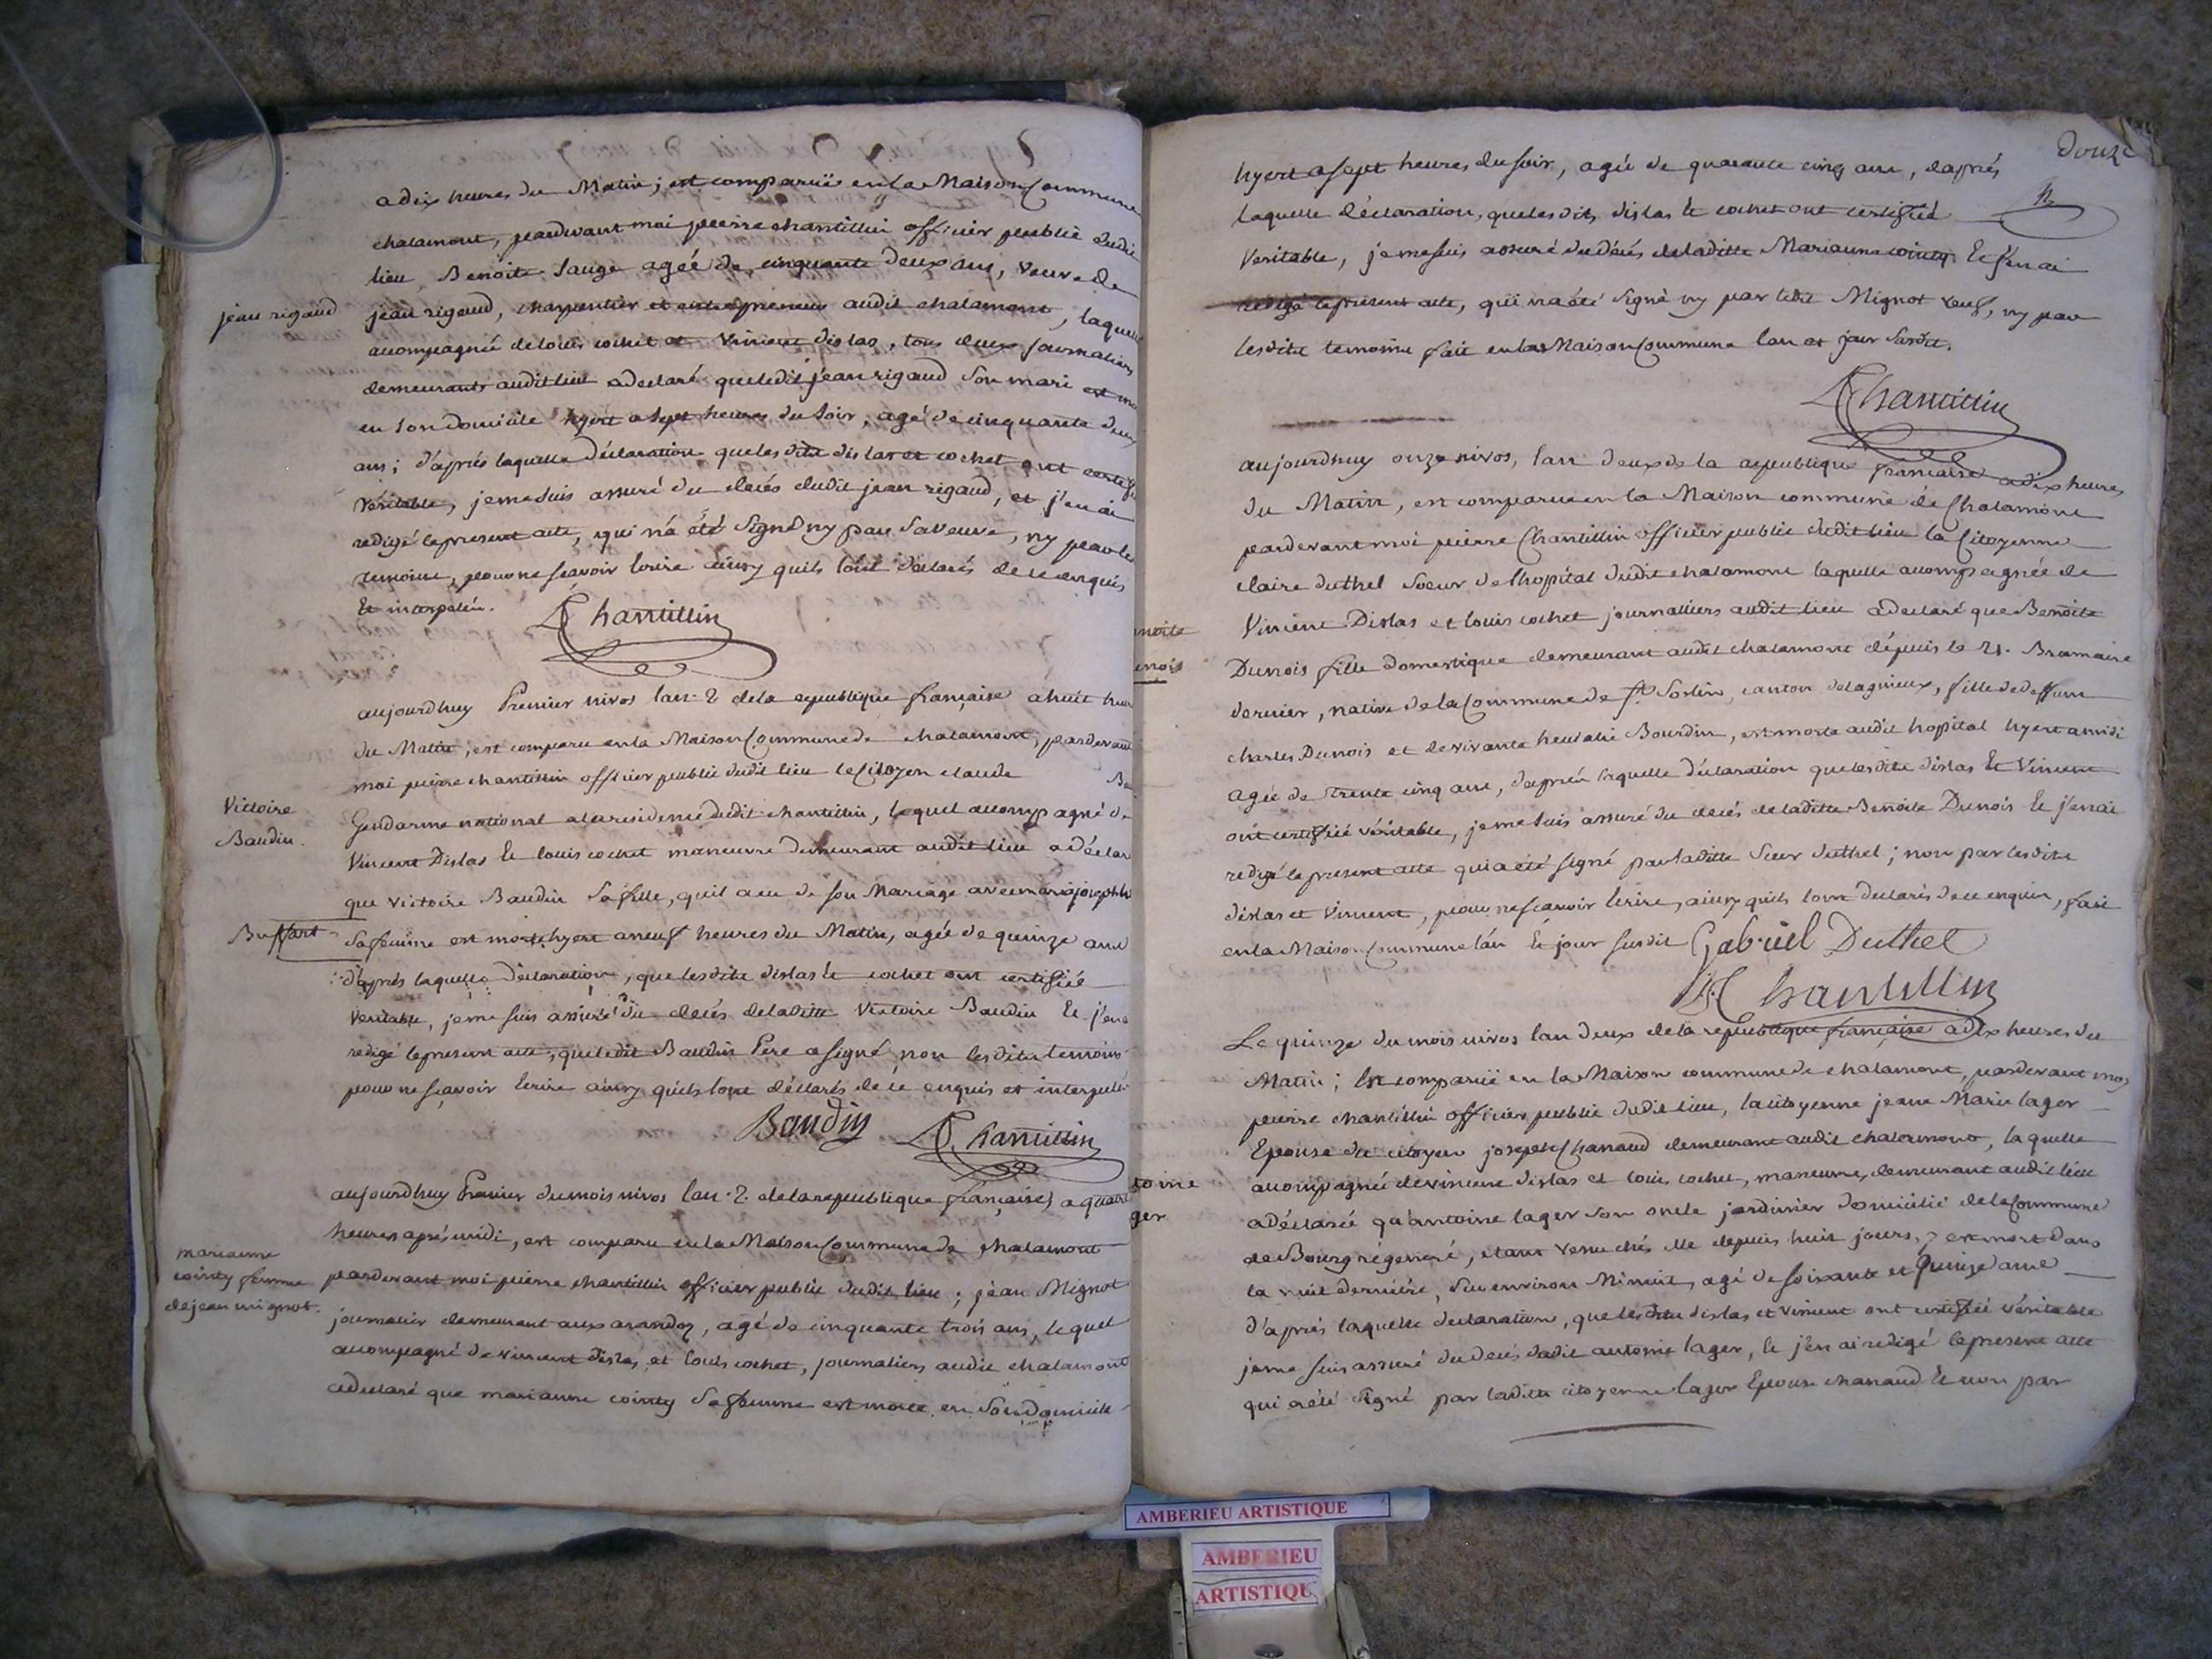 a dix heures du Matin; est comparuë en la Maison Commune
chalamont, pardevant moi pierre chantillin officier public dudit
lieu, Benoite Sauge agée de cinquante deux ans, veuve de
jean rigaud
jean rigaud, charpentier et entrepreneur audit chalamont, laquel
accompagnée de louis cochet et Vincent dislas, tous deux journaliers
demeurants audit lieu a declaré que ledit jean rigaud son mari est mo
en son domicile hyert a sept heures du soir, agé de cinquante deux
ans; d'aprés laquelle déclaration que les dits dislas et cochet ont certifié
véritable, je me suis assuré du décés dudit jean rigaud, et j'en ai
redigé le present acte, qui n'a été signé ny par sa veuve, ny par les
temoins, pour ne sçavoir ecrire ainsy quils l'ont déclarés de ce enquis
et interpelés. Chantillin
aujourdhuy Premier nivos lan 2 de la republique française a huit heu
du Matin, est comparu en la Maison Commune de chalamont, pardevant
moi pierre chantillin officier public dudit lieu le Citoyen claude Ba
Victoire
Baudin.
Gendarme national a la residence dudit chantillin, lequel accompagné de
Vincent Dislas et louis cochet maneuvre demeurant audit lieu a déclar
que victoire Baudin sa fille, quil a eu de son Mariage avec maria joseph
Buffart
sa femme est morte hyert a neuf heures du Matin, agée de quinze ans
d'aprés laquelle déclaration, que les dits dislas et cochet ont certifiée
veritable, je me suis assuré du décés de laditte Victoire Baudin et j'en a
redigé le present acte, que ledit Baudin Pere a signé non les dits temoins
pour ne sçavoir ecrire ainsy quils l'ont déclarés de ce enquis et interpellé
Baudin Chantillin
aujourdhuy Premier du mois nivos lan 2 de la republique française, a quatre
heures aprés midi, est comparu en la Maison Commune de chalamont
marianne
cointy femme
de jean mignot.
pardevant moi pierre chantillin officier public dudit lieu; jean Mignot
journalier demeurant aux arandoz, agé de cinquante trois ans, lequel
accompagné de vincent dislas et louis cochet, journaliers audit chalamont
a declaré que marianne cointy sa femme est morte en son domicile
douze
hyert a sept heures du soir, agée de quarante cinq ans, daprés
laquelle déclaration, que les dits dislas et cochet ont certifiée
veritable, je me suis assuré du décés de laditte Marianne cointy et j'en ai
redigé le present acte, qui n'a été signé ny par ledit Mignot veuf, ny par
les dits temoins fait en la Maison Commune lan et jour susdit.
Chantillin
aujourdhuy onze nivos, lan deux de la republique française a dix heures
du Matin, est comparue en la Maison commune de Chalamont
pardevant moi pierre Chantillin officier public dudit lieu la Citoyenne
claire duthel soeur de lhopital dudit chalamont laquelle accompagnée de
noite
Vincent Dislas et louis cochet journalliers audit lieu a declaré que Benoite
unois
Dunois fille domestique demeurant audit chalamont dépuis le 21. Brumaire
dernier, native de la Commune de St. Sorlin, canton de lagnieux, fille de deffunt
charles Dunois et de vivante Bourdin, est morte audit hopital hyert a midi
agée de trente cinq ans, daprés laquelle déclaration que les dits dislas et Vincent
ont certifiée véritable, je me suis assuré du décés de laditte Benoite Dunois et j'en ai
redigé le present acte qui a été signé par laditte soeur duthel; non par les dits
dislas et Vincent, pour ne sçavoir ecrire, ainsy quils l'ont declarés de ce enquis, fait
en la Maison Commune l'an et jour susdit Gabriel Duthel
Chantillin
Le quinze du mois nivos lan deux de la republique française a dix heures du
Matin; est comparuë en la Maison commune de chalamont, pardevant moy
pierre chantillin officier public dudit lieu, la citoyenne jeane Marie lager
Epouse du citoyen joseph Chanaud demeurant audit chalamont, laquelle
toine
accompagnée de vincent dislas et louis cochet, maneuvre, demeurant audit lieu
ger
a déclarée qu'antoine lager son oncle jardinier domicilié de la Commune
de Bourg régeneré, etant venu chés elle depuis huit jours, y est mort dans
la nuit dernière, sur environ Minuit, agé de soixante et Quinze ans
d'aprés laquelle declaration, que les dits dislas et vincent ont certifiée véritable
je me suis assuré du decés dudit antoine lager, et j'en ai redigé le present acte
qui a été signé par laditte citoyenne lager Epouse chanaud et non par
AMBERIEU ARTISTIQUE
AMBERIEU
ARTISTIQU